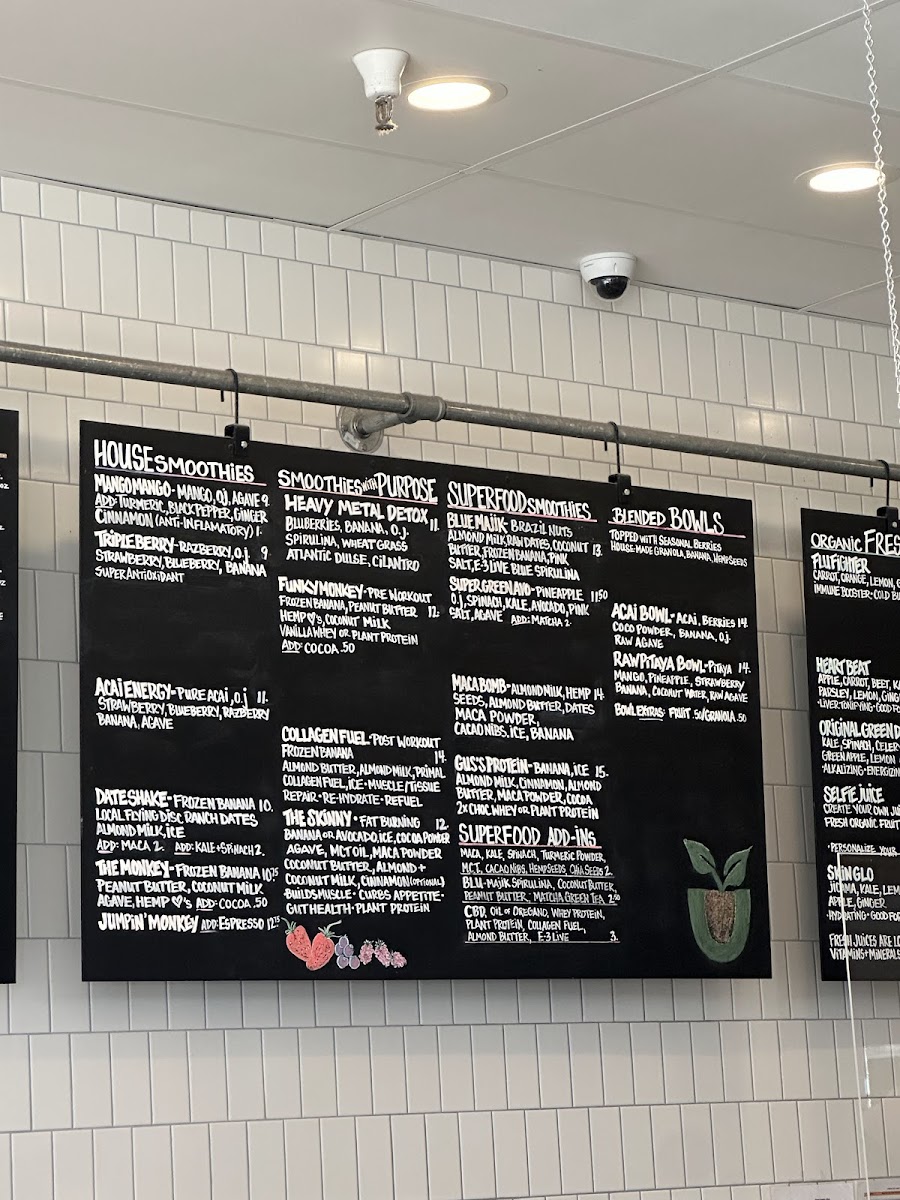 HOUSE SMOOTHIES
MANGO MANGO - MANGO, O.J., AGAVE 9.
ADD: TURMERIC, BLACK PEPPER, GINGER
CINNAMON (ANTI-INFLAMATORY) 1.
TRIPLE BERRY - RAZBERRY, O.J. 9.
STRAWBERRY, BLUEBERRY, BANANA
SUPER ANTIOXIDANT
ACAI ENERGY - PURE ACAI, O.J. 11.
STRAWBERRY, BLUEBERRY, RAZBERRY
BANANA, AGAVE
DATE SHAKE - FROZEN BANANA 10.
LOCAL FLYING DISC RANCH DATES
ALMOND MILK, ICE
ADD: MACA 2. ADD: KALE + SPINACH 2.
THE MONKEY - FROZEN BANANA 10.75
PEANUT BUTTER, COCONUT MILK
AGAVE, HEMP ♡'S ADD: COCOA .50
JUMPIN' MONKEY ADD: ESPRESSO 12.75
SMOOTHIES WITH PURPOSE
HEAVY METAL DETOX 11.
BLUBERRIES, BANANA, O.J.
SPIRULINA, WHEAT GRASS
ATLANTIC DULSE, CILANTRO
FUNKY MONKEY - PRE WORKOUT
FROZEN BANANA, PEANUT BUTTER 12.
HEMP ♡'S, COCONUT MILK
VANILLA WHEY OR PLANT PROTEIN
ADD: COCOA .50
COLLAGEN FUEL - POST WORKOUT
FROZEN BANANA 14.
ALMOND BUTTER, ALMOND MILK, PRIMAL
COLLAGEN FUEL, ICE • MUSCLE/TISSUE
REPAIR • RE-HYDRATE • REFUEL
THE SKINNY • FAT BURNING 12.
BANANA OR AVOCADO, ICE, COCOA POWDER
AGAVE, MCT OIL, MACA POWDER
COCONUT BUTTER, ALMOND +
COCONUT MILK, CINNAMON (OPTIONAL)
BUILDS MUSCLE • CURBS APPETITE •
GUT HEALTH • PLANT PROTEIN
SUPERFOOD SMOOTHIES
BLUE MAJIK - BRAZIL NUTS
ALMOND MILK, RAW DATES, COCONUT 13.
BUTTER, FROZEN BANANA, PINK
SALT, E-3 LIVE BLUE SPIRULINA
SUPER GREEN AVO - PINEAPPLE 11.50
O.J., SPINACH, KALE, AVOCADO, PINK
SALT, AGAVE ADD: MATCHA 2.
MACA BOMB - ALMOND MILK, HEMP 14.
SEEDS, ALMOND BUTTER, DATES
MACA POWDER,
CACAO NIBS, ICE, BANANA
GUS'S PROTEIN - BANANA, ICE 15.
ALMOND MILK, CINNAMON, ALMOND
BUTTER, MACA POWDER, COCOA
2X CHOC WHEY OR PLANT PROTEIN
SUPERFOOD ADD-INS
MACA, KALE, SPINACH, TURMERIC POWDER,
MCT, CACAO NIBS, HEMP SEEDS, CHIA SEEDS 2.
BLU-MAJIK SPIRULINA, COCONUT BUTTER,
PEANUT BUTTER, MATCHA GREEN TEA 2.50
CBD, OIL OF OREGANO, WHEY PROTEIN,
PLANT PROTEIN, COLLAGEN FUEL,
ALMOND BUTTER, E-3 LIVE 3.
BLENDED BOWLS
TOPPED WITH SEASONAL BERRIES
HOUSE-MADE GRANOLA, BANANA, HEMP SEEDS
ACAI BOWL - ACAI, BERRIES 14.
COCO POWDER, BANANA, O.J.
RAW AGAVE
RAW PITAYA BOWL - PITAYA 14.
MANGO, PINEAPPLE, STRAWBERRY
BANANA, COCONUT WATER, RAW AGAVE
BOWL EXTRAS: FRUIT .50/GRANOLA .50
ORGANIC FRES
FLU FIGHTER
CARROT, ORANGE, LEMON,
IMMUNE BOOSTER • COLD
HEART BEAT
APPLE, CARROT, BEET,
PARSLEY, LEMON,
LIVER TONIFYING • GOOD
ORIGINAL GREEN
KALE, SPINACH,
GREEN APPLE, LEMON
•ALKALIZING •
SELFIE JUICE
CREATE YOUR OWN
FRESH ORGANIC
• PERSONALIZE YOUR
SKIN GLO
JICAMA, KALE,
APPLE, GINGER
•HYDRATING • GOOD
FRESH JUICES ARE
VITAMINS + MINERALS